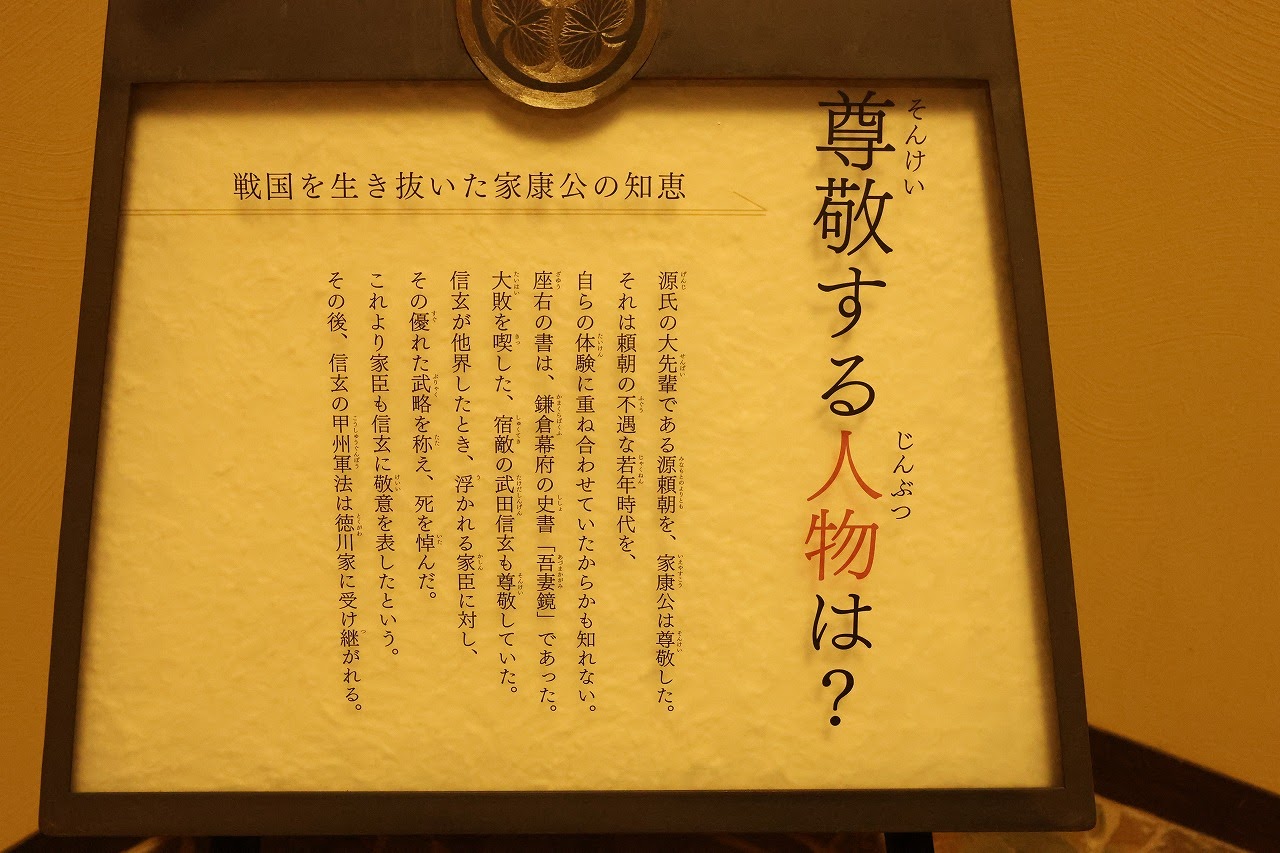 尊敬する人物は？
そんけい
じんぶつ
戦国を生き抜いた家康公の知恵
源氏の大先輩である源頼朝を、家康公は尊敬した。
それは頼朝の不遇な若年時代を、
自らの体験に重ね合わせていたからかも知れない。
座右の書は、鎌倉幕府の史書「吾妻鏡」であった。
大敗を喫した、宿敵の武田信玄も尊敬していた。
信玄が他界したとき、浮かれる家臣に対し、
その優れた武略を称え、死を悼んだ。
これより家臣も信玄に敬意を表したという。
その後、信玄の甲州軍法は徳川家に受け継がれる。